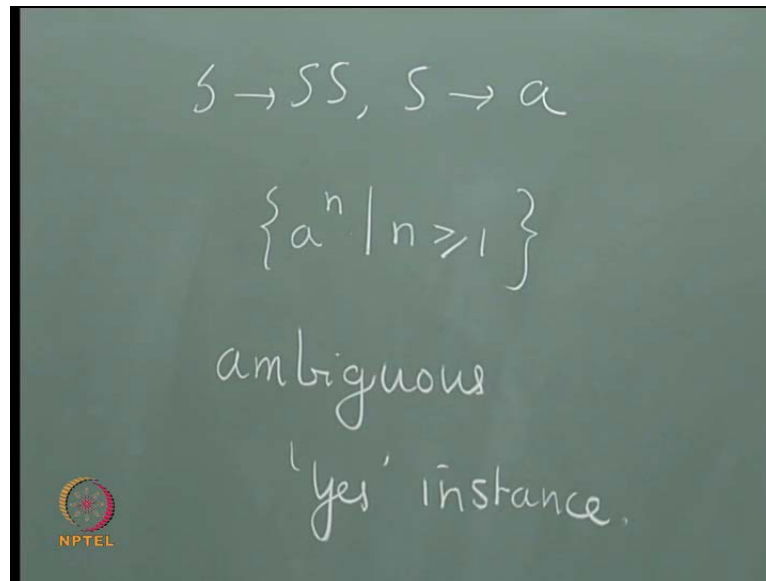 S → SS, S → a
{aⁿ | n ⩾ 1}
ambiguous
'yes' instance.
NPTEL